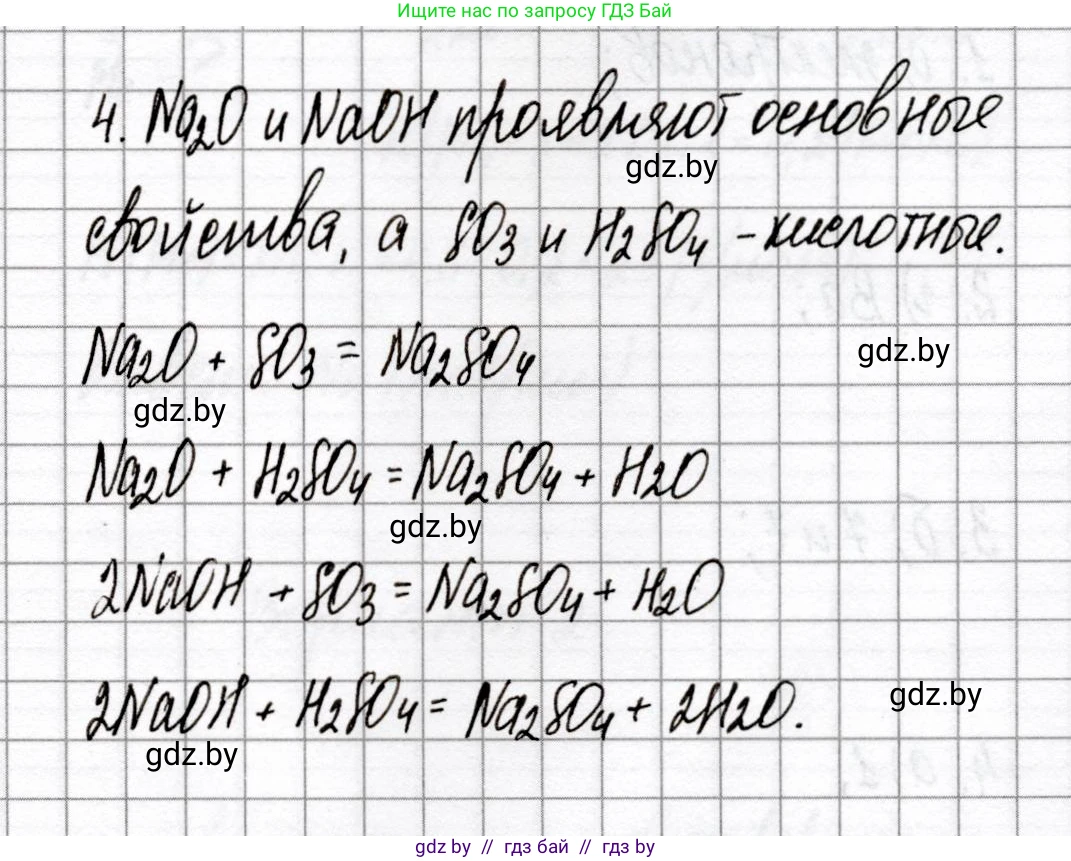 Ищите нас по запросу ГДЗ Бай
4. Na₂O и NaOH проявляют основные
gdz.by
свойства, а SO₃ и H₂SO₄ - кислотные.
Na₂O + SO₃ = Na₂SO₄
gdz.by
gdz.by
Na₂O + H₂SO₄ = Na₂SO₄ + H₂O
gdz.by
2NaOH + SO₃ = Na₂SO₄ + H₂O
2NaOH + H₂SO₄ = Na₂SO₄ + 2H₂O.
gdz.by
gdz.by
gdz.by // гдз бай // гдз by